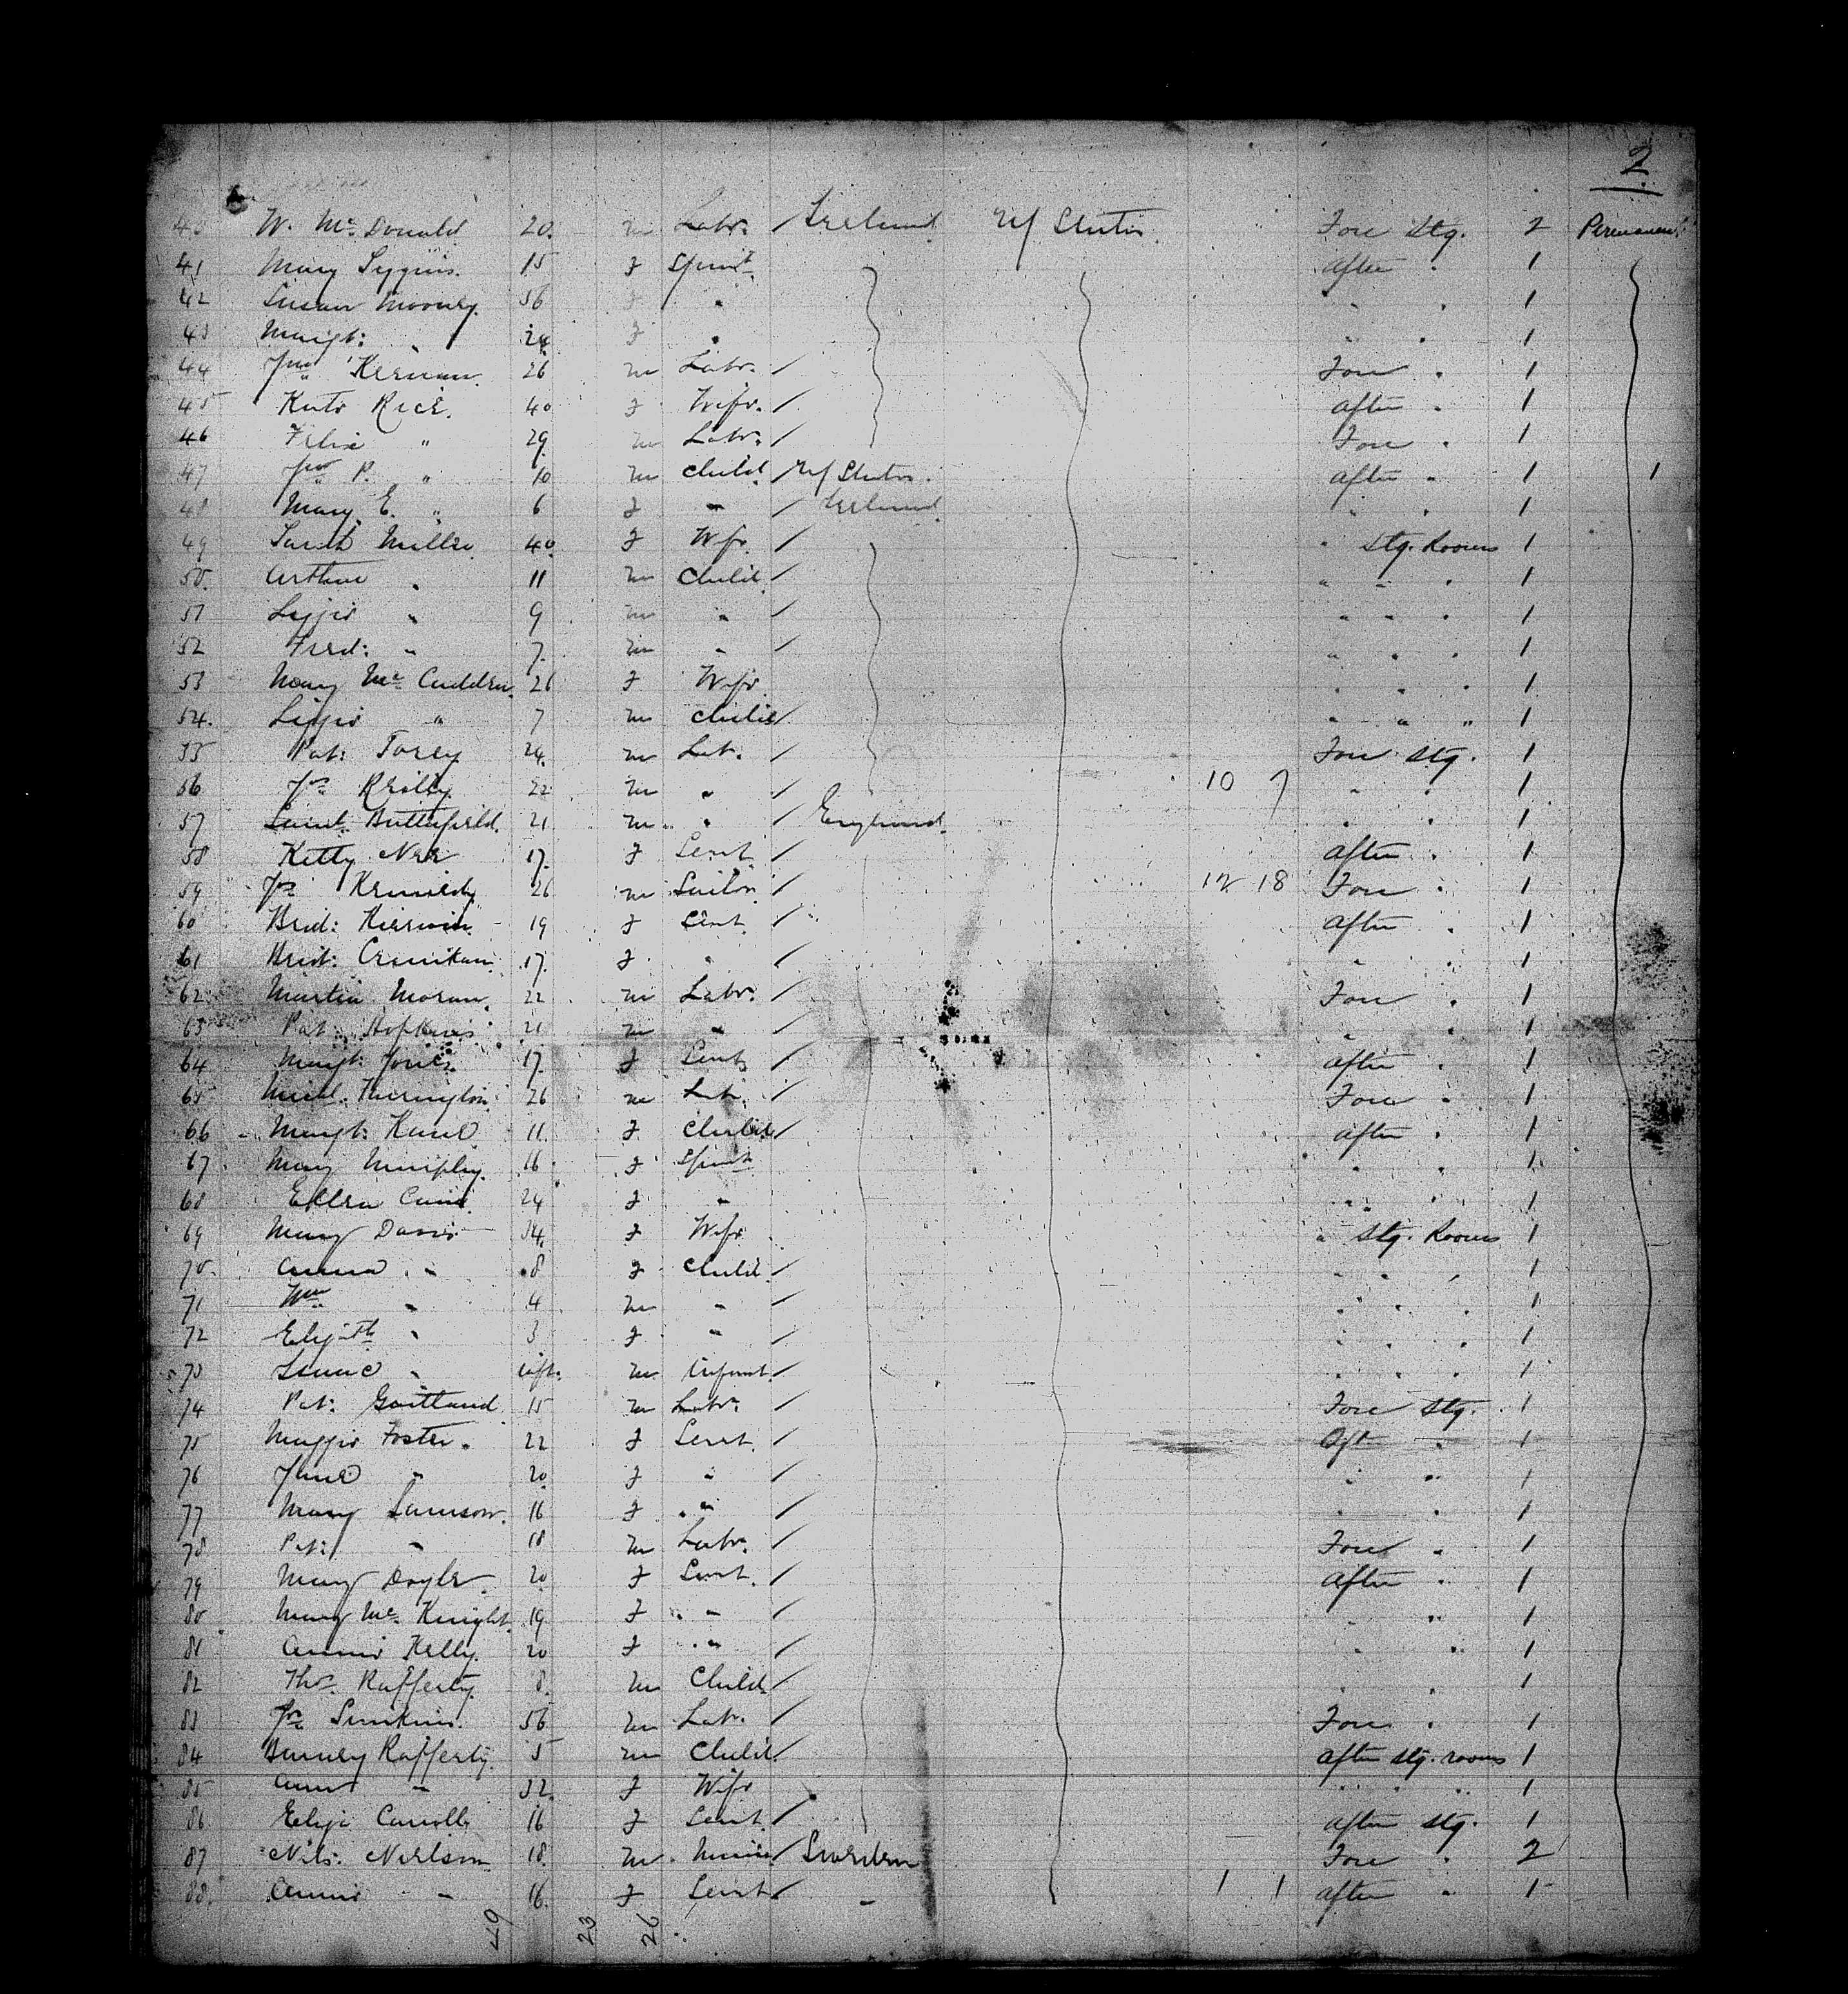 2
40 W. Mc Donald 20 m Labr. / Ireland U/ States Fore Stg. 2 Permanent
41 Mary 15 f Spinst. After " 1
42 Susan Mooney 56 f " " " 1
43 Margt: " 24 f " " " 1
44 Jno Kernan 26 m Labr. / Fore " 1
45 Kate Rice 40 f Wife / After " 1
46 Felix " 29 m Labr. / Fore " 1
47 Jno P. " 10 m Child / U/ States After " 1 1
48 Mary E. " 6 f " / Ireland " " 1
49 Sarah Miller 40 f Wife / " Stg. Rooms 1
50 Arthur " 11 m Child / " " " 1
51 Lizzie " 9 m " / " " " 1
52 Fred: " 7 m " / " " " 1
53 Mary Mc Cudden 26 f Wife " " " 1
54 Lizzie " 7 m Child / " " " 1
55 Pat: 24 m Lab. / Fore Stg. 1
56 Jno Reilly 22 m " / 10 7 " " 1
57 Saml. Butterfield 21 m " / England " " 1
58 Kitty 17 f Servt. / After " 1
59 Jno Kennedy 26 m Sailor / 12 18 Fore " 1
60 Brid: Kierwin 19 f Servt. / After " 1
61 Brid: 17 f " / " " 1
62 Martin Moran 22 m Labr. / Fore " 1
63 Pat: Hopkins 21 m " / " " 1
64 Margt: Jones 17 f Servt. / After " 1
65 Michl. 26 m Lab. / Fore " 1
66 Margt: Kane 11 f Child / After " 1
67 Mary Murphy 16 f Spinst " " 1
68 Ellen 24 f " " " 1
69 Mary Davis 34 f Wife " Stg. Rooms 1
70 Anna " 8 f Child / " " " 1
71 Wm " 4 m " / " " " 1
72 Elizth " 3 f " / " " " 1
73 Isaac " inft. m Infant / " " " 1
74 Pat: Gartland 15 m Labr. / Fore Stg. 1
75 Maggie Foster 22 f Servt. / Aft " 1
76 Jane " 20 f " / " " 1
77 Mary 16 f " / " " 1
78 Pat: " 18 m Labr. / Fore " 1
79 Mary Doyle 20 f Servt. / After " 1
80 Mary Mc Knight 19 f " / " " 1
81 Annie Kelly 20 f " / " " 1
82 Thos. Rafferty 8 m Child / " " 1
83 Jno 56 m Lab. / Fore " 1
84 Barney Rafferty 5 m Child / After Stg. rooms 1
85 Ann " 32 f Wife " " " 1
86 Eliza Carroll 16 f Servt. / After Stg. 1
87 Nils: Neilson 18 m / Sweden Fore " 2
88 Annie " 16 f Servt. / " 1 1 After " 1
49 23 26